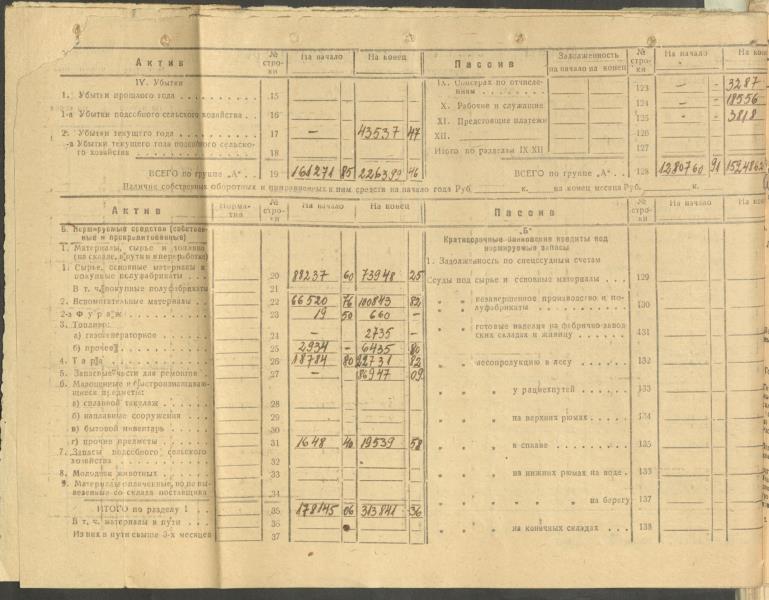 Актив № строки На начало На конец
IV. Убытки
1. Убытки прошлого года 15
1-а Убытки подсобного сельского хозяйства 16
2. Убытки текущего года 17 — 43537 47
-а Убытки текущего года подсобного сельского хозяйства 18
ВСЕГО по группе „А" 19 161271 85 226399 46
Пассив Задолженность на начало на конец № строки На начало На кон
IX. по отчислениям 123 — - 3287
X. Рабочие и служащие 124 — - 18556
XI. Предстоящие платежи 125 — - 3818
XII. 126
Итого по разделу IX-XII 127
ВСЕГО по группе „А" 128 1280760 91 1524862
Наличие собственных оборотных и приравненных к ним средств на начало года Руб. к. на конец месяца Руб. к.
Актив Норматив № строки На начало На конец
Б. Нормируемые средства (собственные и прокредитованные)
1. Материалы, сырье и топливо (на складе, в пути и в переработке)
1. Сырье, основные материалы и покупные полуфабрикаты 20 88237 60 73948 25
В т. ч. покупные полуфабрикаты 21
2. Вспомогательные материалы 22 66520 76 100843 82
2-а Фураж 23 19 50 660 —
3. Топливо:
а) газогенераторное 24 — 2735 —
б) прочее 25 2934 — 6435 80
4. Тара 26 18784 80 22731 82
5. Запасные части для ремонта 27 — 86947 09
6. Малоценные и быстроизнашивающиеся предметы:
а) сплавной такелаж 28
б) наплавные сооружения 29
в) бытовой инвентарь 30
г) прочие предметы 31 1648 40 19539 58
7. Запасы подсобного сельского хозяйства 32
8. Молодняк животных 33
9. Материалы оплаченные, но не вывезенные со склада поставщика 34
ИТОГО по разделу 1 35 178145 06 313841 36
В т. ч. материалы в пути 36
Из них в пути свыше 3-х месяцев 37
Пассив № строки На начало На кон
„Б"
Краткосрочные банковские кредиты под нормируемые запасы
1. Задолженность по спецссудным счетам
Ссуды под сырье и основные материалы 129
„ „ незавершенное производство и полуфабрикаты 130
„ „ готовые изделия на фабрично-заводских складах и живицу 131
„ „ лесопродукцию в лесу 132
„ „ „ у рацжехпутей 133
„ „ „ на верхних рюмах 134
„ „ „ в сплаве 135
„ „ „ на нижних рюмах на воде 136
„ „ „ „ „ „ на берегу 137
„ „ „ на конечных складах 138